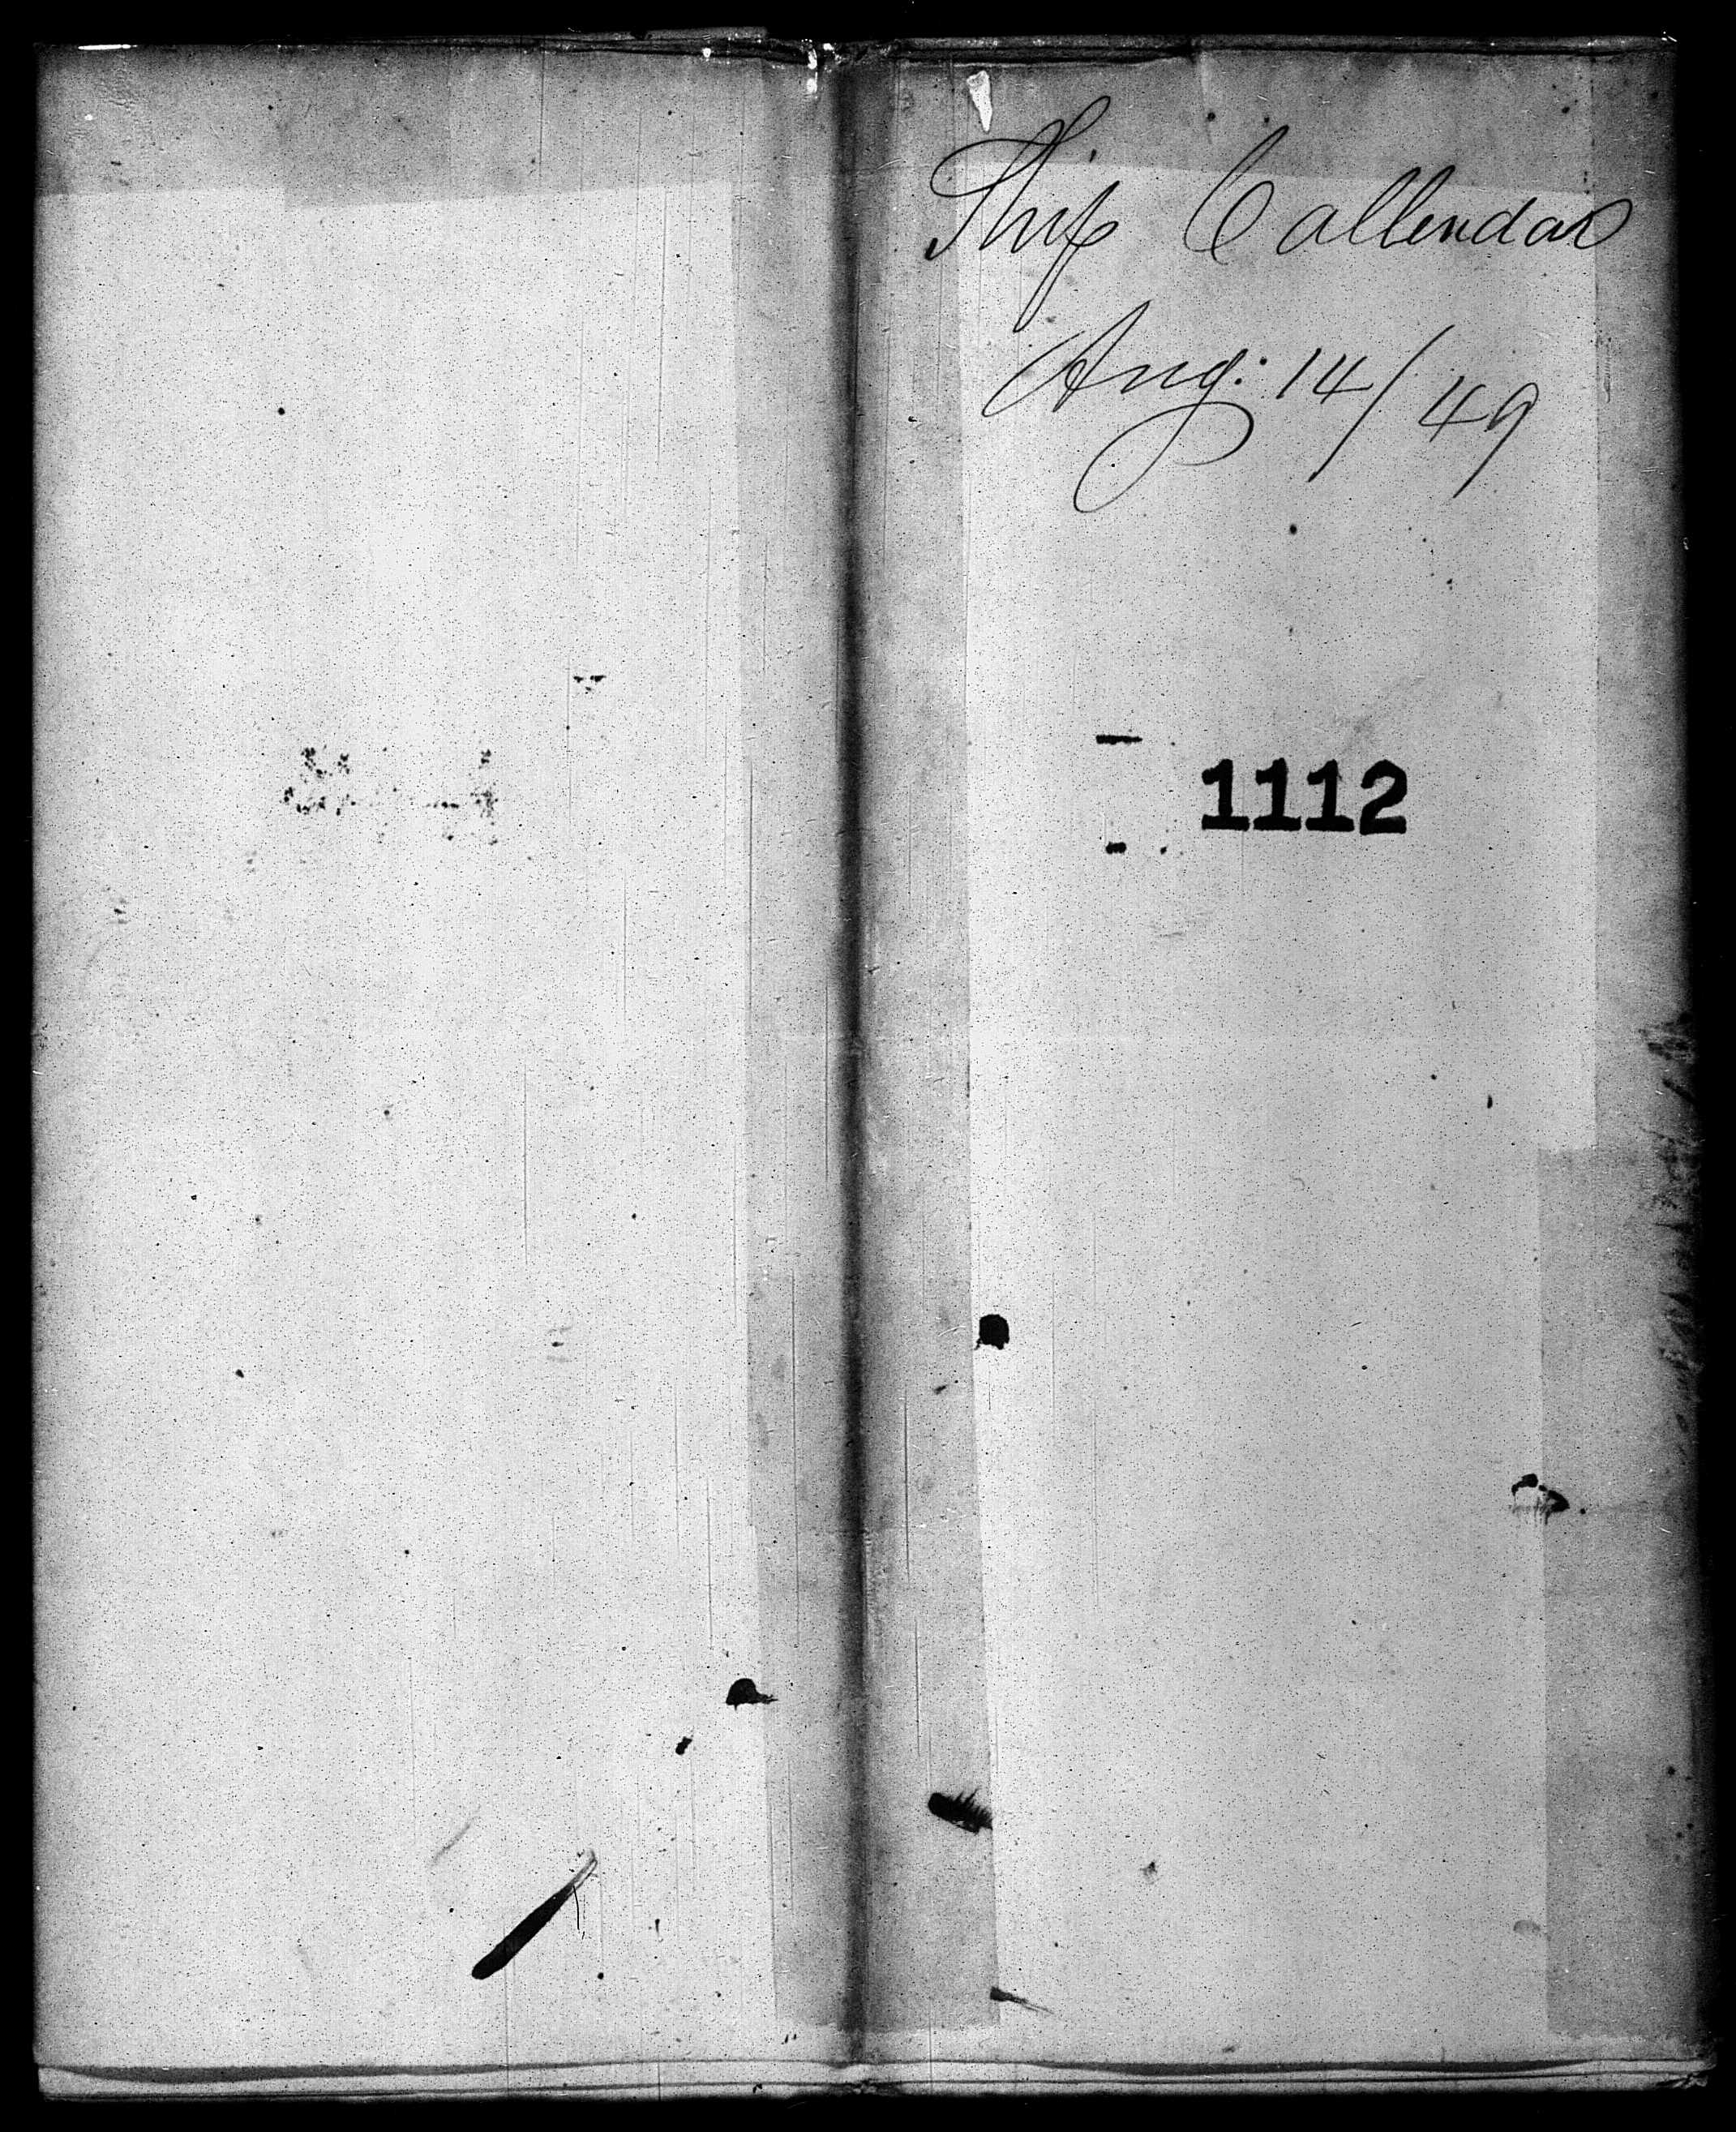 Ship Callendar
Aug: 14/49
1112